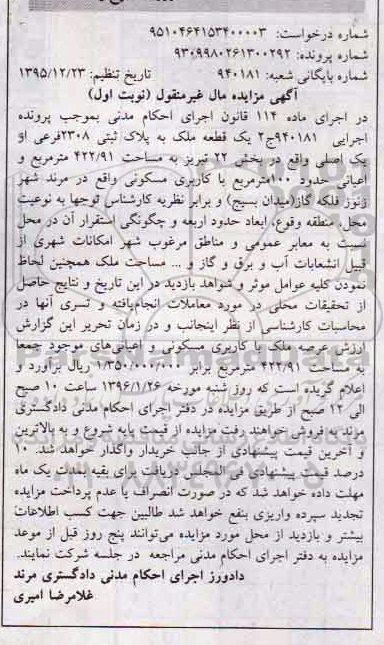 شماره درخواست: ۹۵۱۰۴۶۴۱۵۳۴۰۰۰۰۳
شماره پرونده: ۹۳۰۹۹۸۰۲۶۱۳۰۰۲۹۲
شماره بایگانی شعبه: ۹۴۰۱۸۱ تاریخ تنظیم: ۱۳۹۵/۱۲/۲۳
آگهی مزایده مال غیرمنقول (نوبت اول)
در اجرای ماده ۱۱۴ قانون اجرای احکام مدنی بموجب پرونده
اجرایی ۹۴۰۱۸۱ج۲ یک قطعه ملک به پلاک ثبتی ۲۳۰۸فرعی از
یک اصلی واقع در بخش ۲۲ تبریز به مساحت ۴۲۲/۹۱ مترمربع و
اعیانی حدود ۱۰۰مترمربع با کاربری مسکونی واقع در مرند شهر
زنوز فلکه گاز(میدان بسیج) و برابر نظریه کارشناس توجها به نوعیت
محل، منطقه وقوع، ابعاد حدود اربعه و چگونگی استقرار آن در محل
نسبت به معابر عمومی و مناطق مرغوب شهر امکانات شهری از
قبیل انشعابات آب و برق و گاز و ... مساحت ملک همچنین لحاظ
نمودن کلیه عوامل موثر و شواهد بازدید در این تاریخ و نتایج حاصل
از تحقیقات محلی در مورد معاملات انجام‌یافته و تسری آنها در
محاسبات کارشناسی از نظر اینجانب و در زمان تحریر این گزارش
ارزش عرصه ملک با کاربری مسکونی و اعیانی‌های موجود جمعا
به مساحت ۴۲۲/۹۱ مترمربع برابر ۱/۳۵۰/۰۰۰/۰۰۰ ریال برآورد و
اعلام گردیده است که روز شنبه مورخه ۱۳۹۶/۱/۲۶ ساعت ۱۰ صبح
الی ۱۲ صبح از طریق مزایده در دفتر اجرای احکام مدنی دادگستری
مرند به فروش خواهند رفت مزایده از قیمت پایه شروع و به بالاترین
و آخرین قیمت پیشنهادی از جانب خریدار واگذار خواهد شد. ۱۰
درصد قیمت پیشنهادی فی‌المجلس دریافت برای بقیه بمدت یک ماه
مهلت داده خواهد شد که در صورت انصراف یا عدم پرداخت مزایده
تجدید سپرده واریزی بنفع خواهد شد طالبین جهت کسب اطلاعات
بیشتر و بازدید از محل مورد مزایده می‌توانند پنج روز قبل از موعد
مزایده به دفتر اجرای احکام مدنی مراجعه در جلسه شرکت نمایند.
دادورز اجرای احکام مدنی دادگستری مرند
غلامرضا امیری